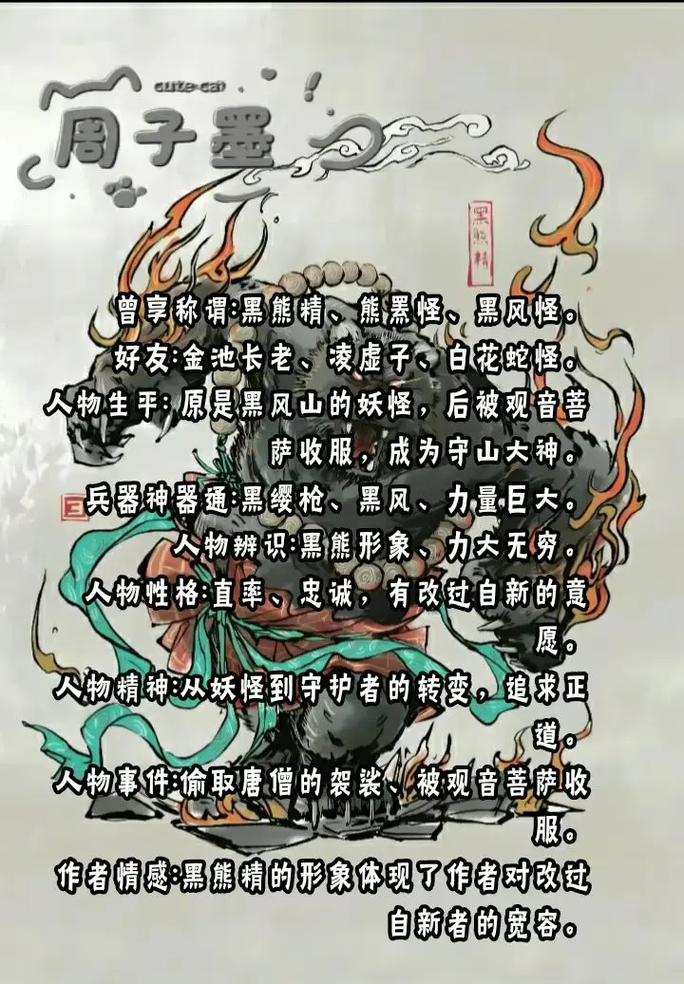 cute cat
周子墨
黑熊精
曾享称谓:黑熊精、熊罴怪、黑风怪。
好友:金池长老、凌虚子、白花蛇怪。
人物生平:原是黑风山的妖怪，后被观音菩
萨收服，成为守山大神。
兵器神器通:黑缨枪、黑风、力量巨大。
人物辨识:黑熊形象、力大无穷。
人物性格:直率、忠诚，有改过自新的意
愿。
人物精神:从妖怪到守护者的转变，追求正
道。
人物事件:偷取唐僧的袈裟、被观音菩萨收
服。
作者情感:黑熊精的形象体现了作者对改过
自新者的宽容。